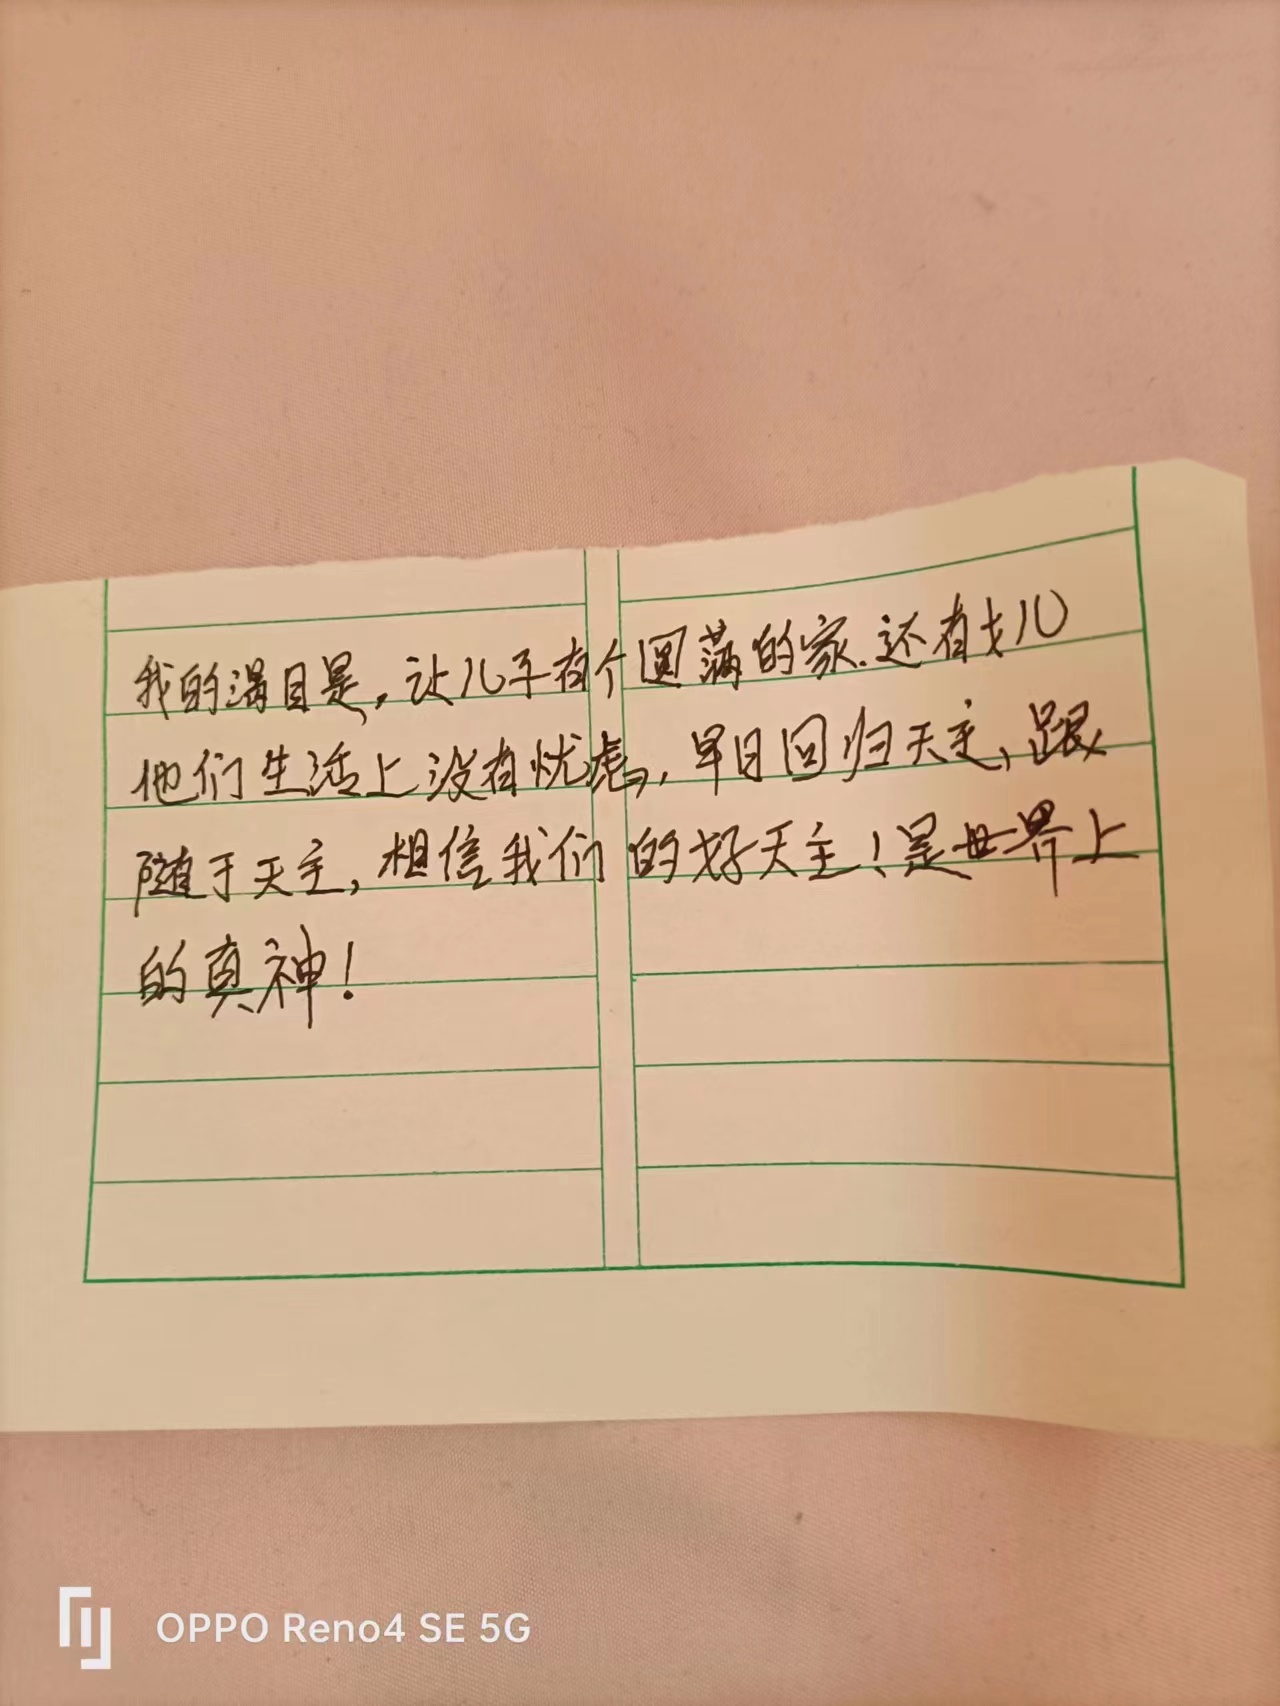 我的 目是，让儿子有个圆满的家.还有女儿
他们生活上没有忧虑，早日回归天主、跟
随于天主，相信我们的好天主！是世界上
的真神！
OPPO Reno4 SE 5G